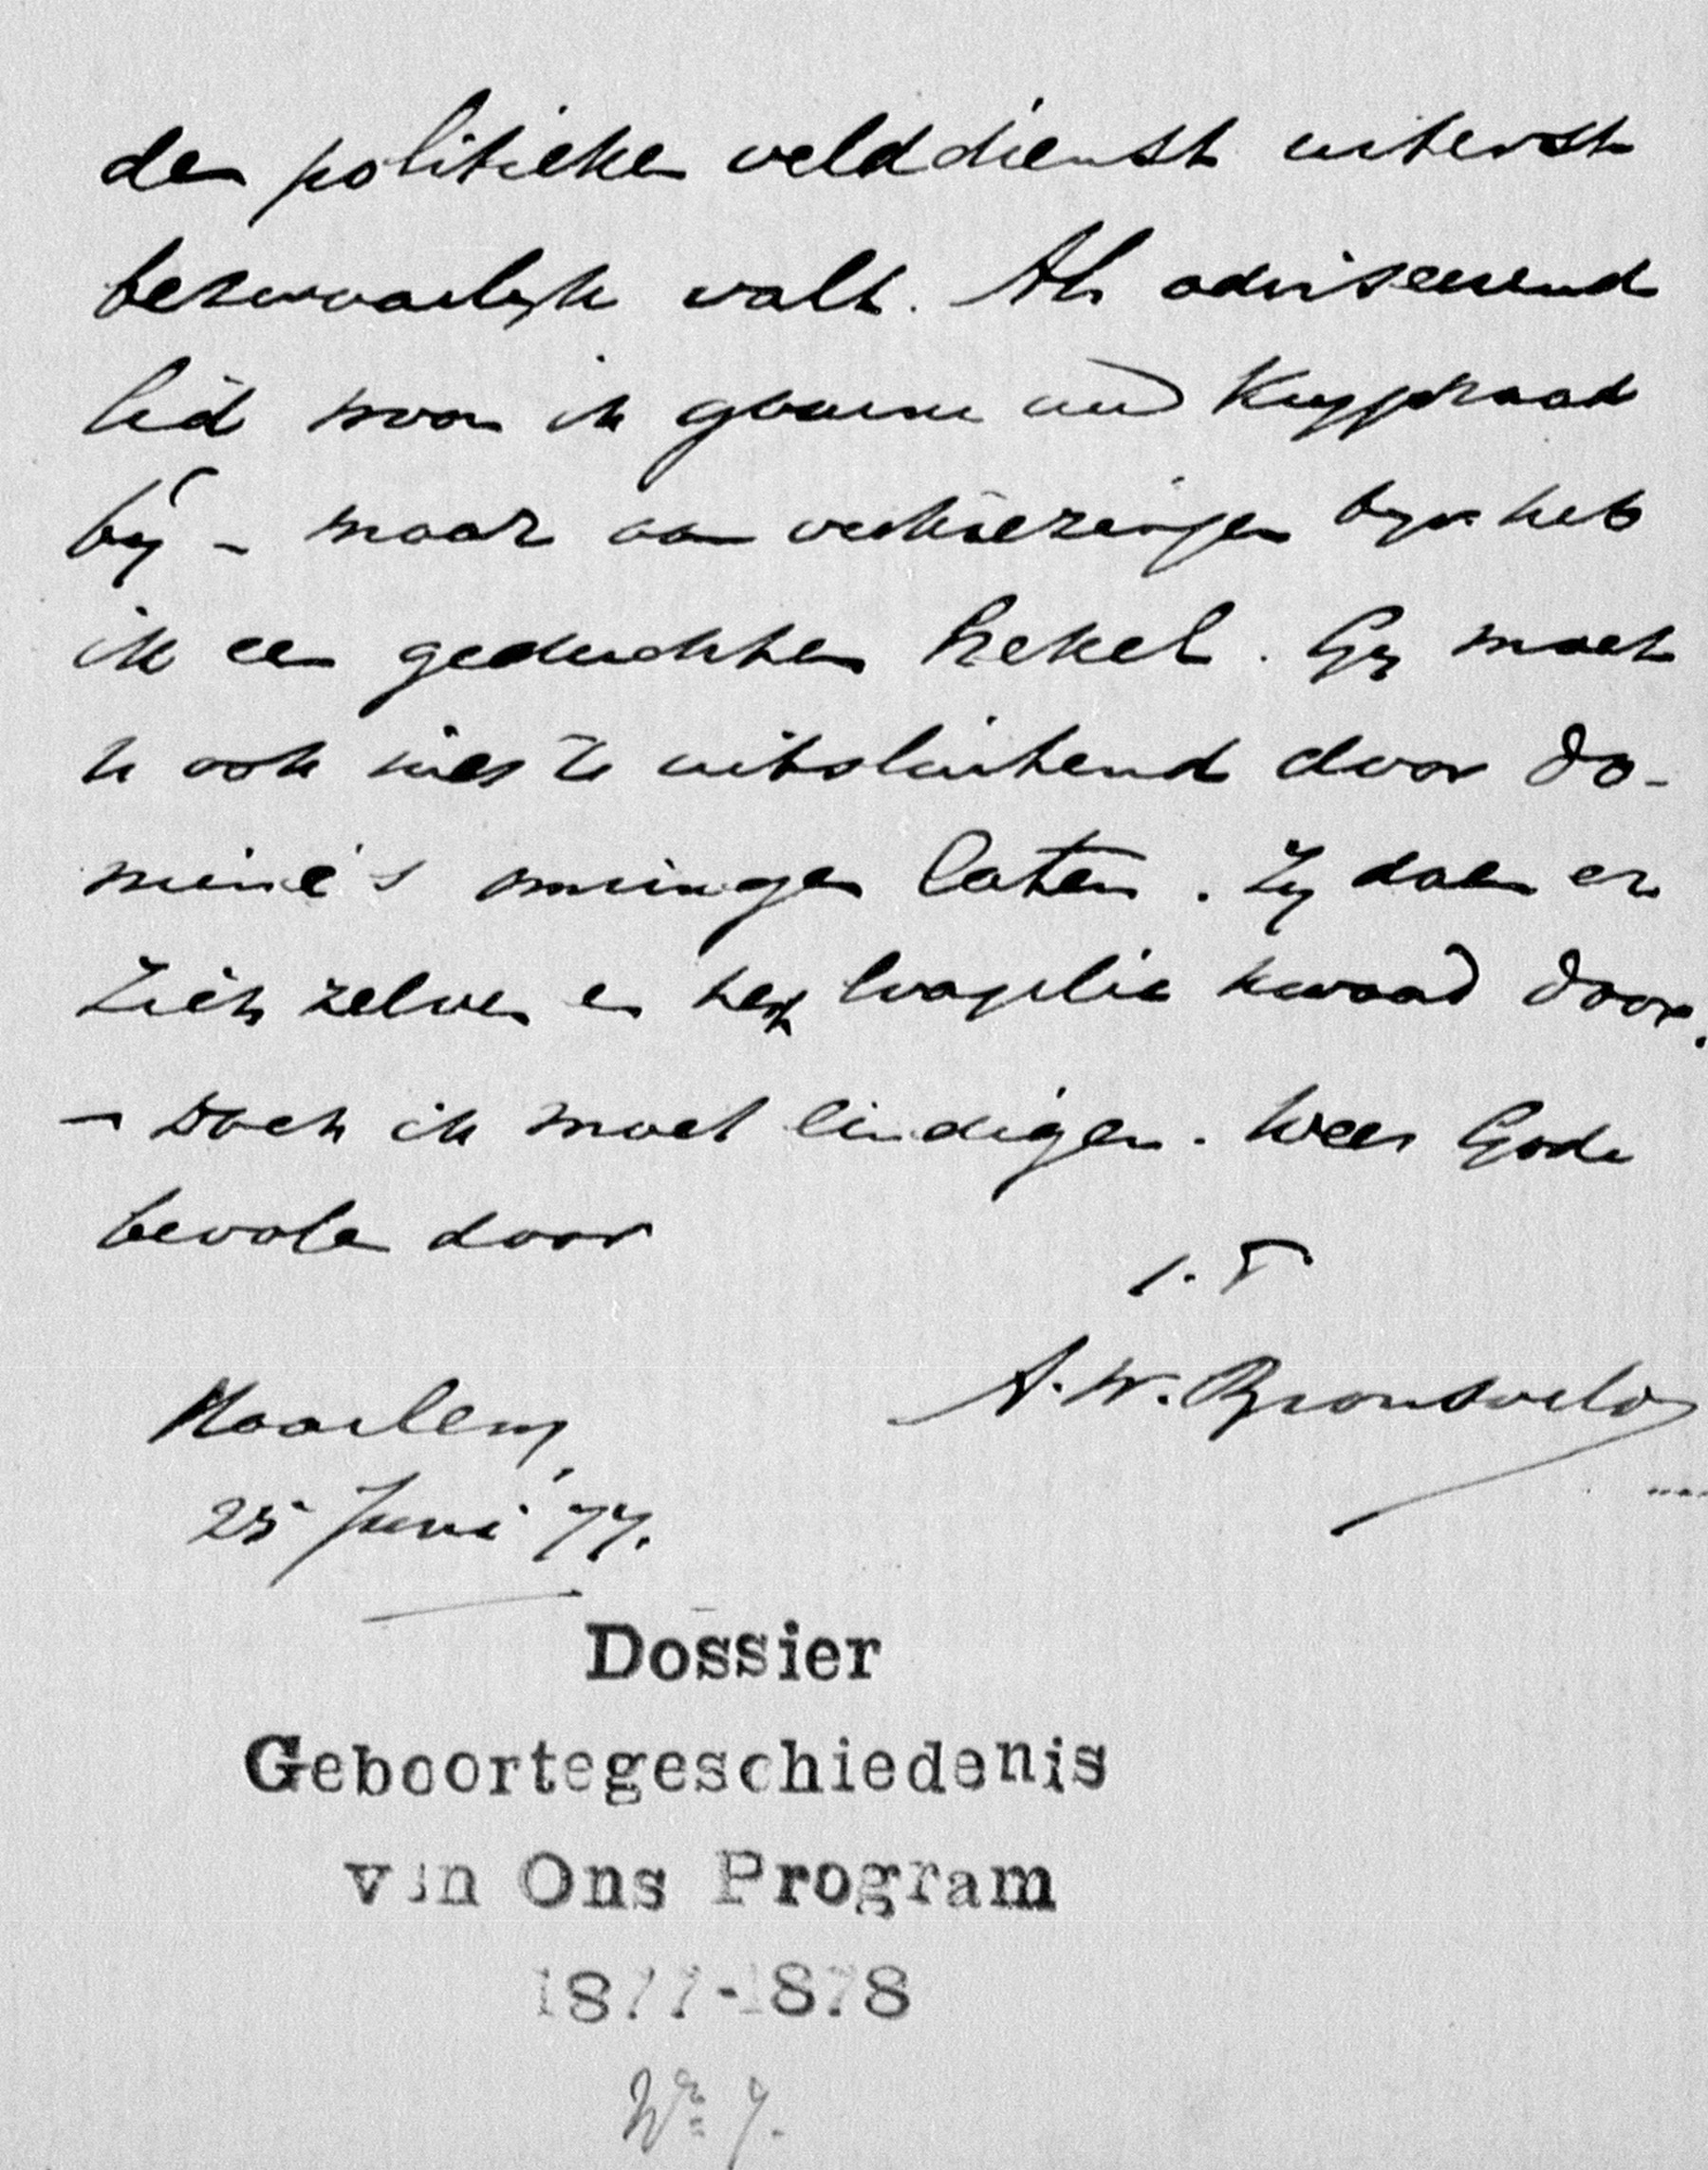 den politieken velddienst uiterst
bezwaarlijk valt. Als adviseerend
lid woon ik gaarne uw Krijgsraad
bij – maar aan verkiezingen heb
ik een geduchten hekel. Gij moet
U ook niet te uitsluitend door do-
miné's omringen laten. Zij doen er
zich zelven en het Evangelie kwaad door.
– Doch ik moet eindigen. Wees Gode
bevolen door
t. t.
A. W. Bronsveld
Haarlem,
25 Juni '77.
Dossier
Geboortegeschiedenis
van Ons Program
1877-1878
No 7.